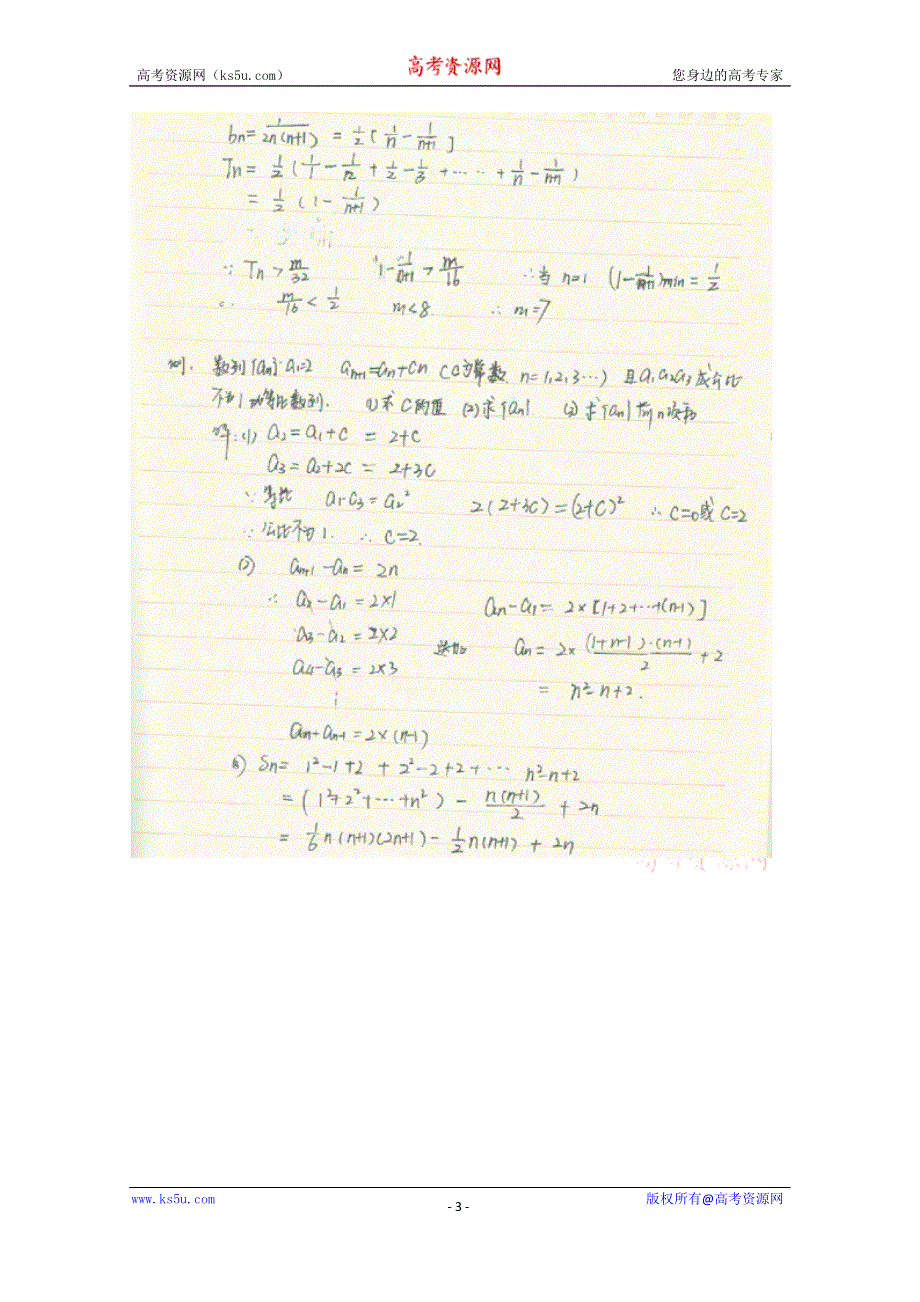 高考资源网（ks5u.com）
高考资源网
您身边的高考专家
bn=1/(2n(n+1)) = 1/2 [ 1/n - 1/(n+1) ]
Tn = 1/2 ( 1/1 - 1/2 + 1/2 - 1/3 + ⋯⋯ + 1/n - 1/(n+1) )
= 1/2 ( 1 - 1/(n+1) )
∵ Tn > m/32 1 - 1/(n+1) > m/16 ∴当 n=1 (1 - 1/(n+1))min = 1/2
∴ m/16 < 1/2 m<8. ∴ m=7
例. 数列{an} a1=2 an+1=an+cn (c为常数. n=1,2,3⋯) 且a1a2a3成公比
不为1的等比数列. (1)求C的值 (2)求{an} (3)求{an}前n项和
解:(1) a2=a1+c = 2+c
a3=a2+2c = 2+3c
∵等比 a1·a3=a2² 2(2+3c)=(2+c)² ∴c=0或c=2
∵公比不为1. ∴c=2.
(2) an+1-an= 2n
∴ a2-a1=2×1 an-a1= 2×[1+2+⋯+(n-1)]
a3-a2=2×2 迭加 an= 2× (1+n-1)·(n-1)/2 +2
a4-a3=2×3 = n²-n+2.
⋮
an-an-1=2×(n-1)
(3) Sn= 1²-1+2 + 2²-2+2+⋯ n²-n+2
=(1²+2²+⋯+n²) - n(n+1)/2 + 2n
= 1/6 n(n+1)(2n+1) - 1/2 n(n+1) + 2n
高考资源网
www.ks5u.com
- 3 -
版权所有@高考资源网